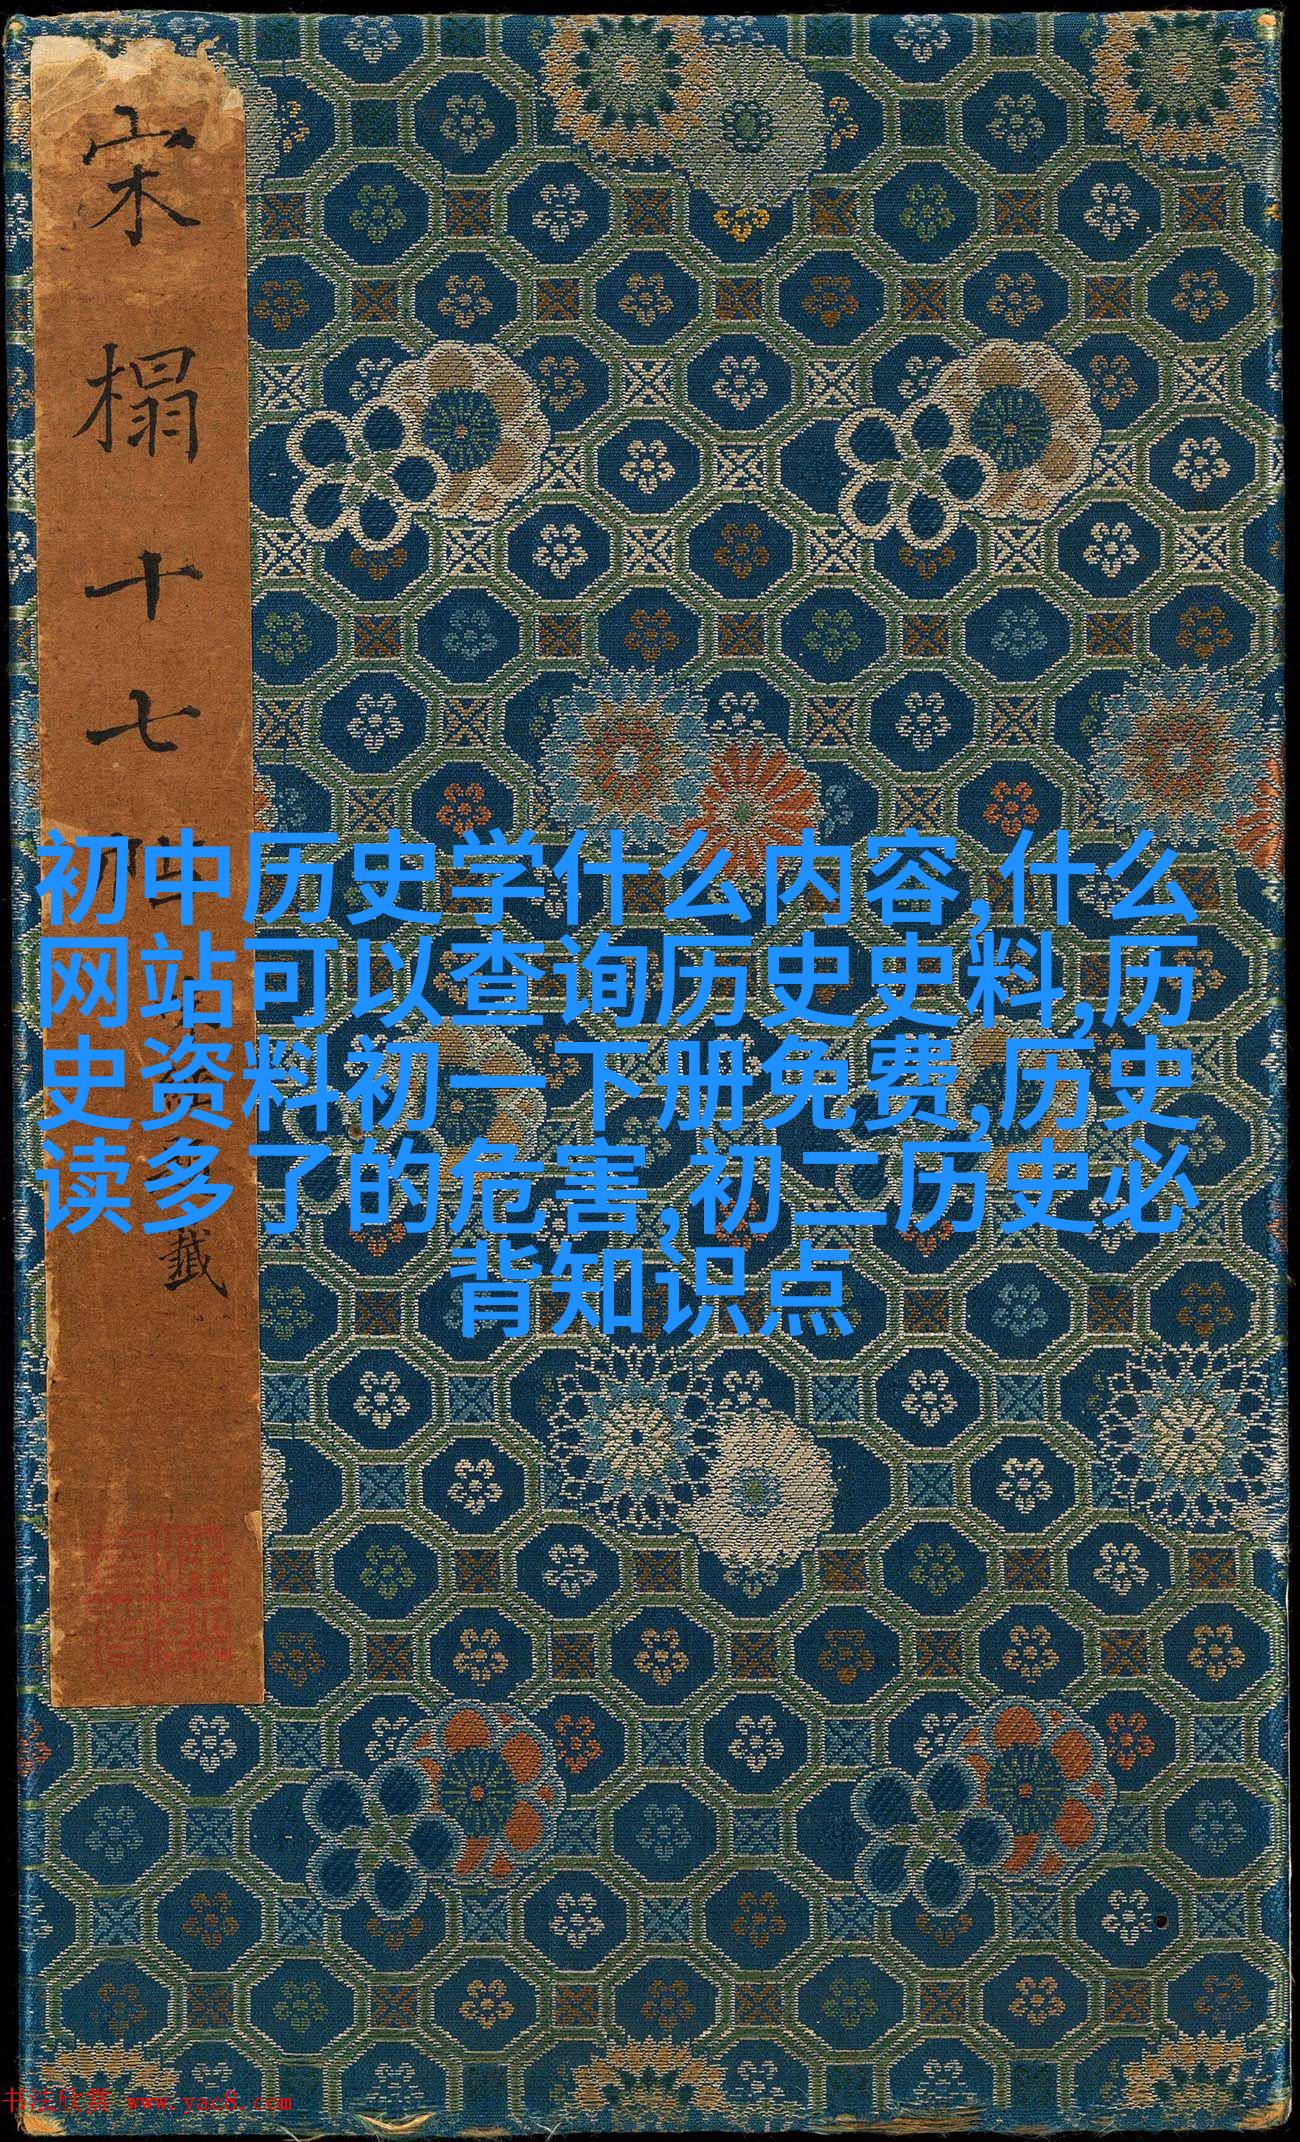 宋榻十七帖
籤
初中历史学什么内容,什么
网站可以查询历史史料,历
史资料初一下册免费,历史
读多了的危害,初二历史必
背知识点
书法欣赏 www.yac8.com